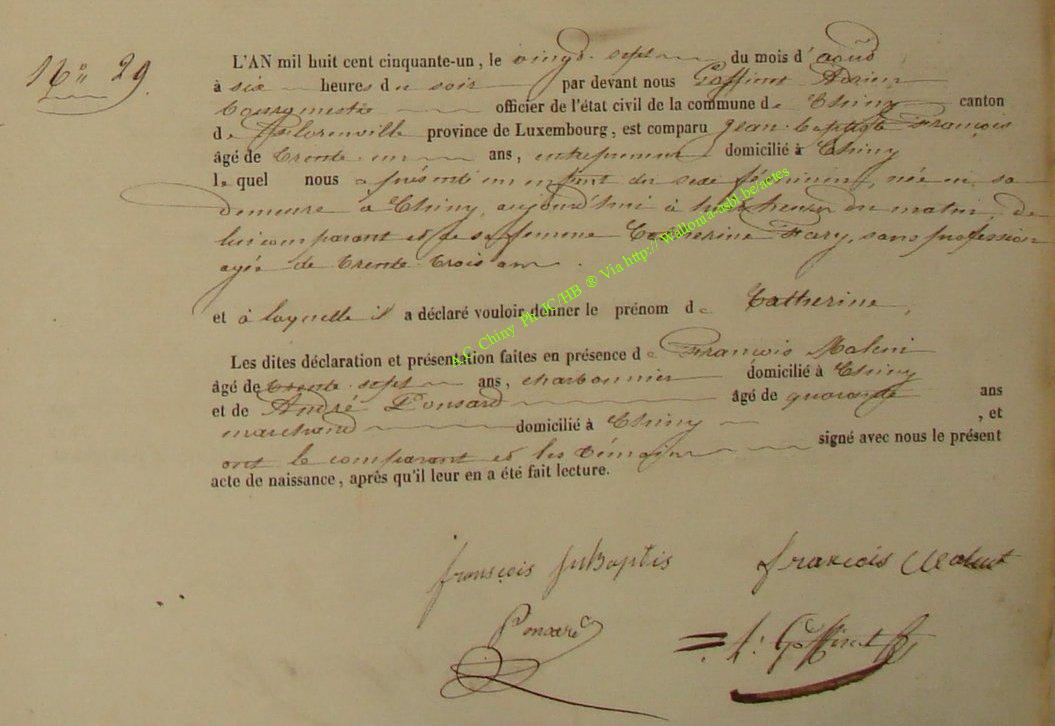 No 29.
L'AN mil huit cent cinquante-un, le vingt sept du mois d' août
à six heures du soir par devant nous Goffinet Adrien
bourgmestre officier de l'état civil de la commune de Chiny canton
de Florenville province de Luxembourg, est comparu Jean-Baptiste François
âgé de trente-un ans, entrepreneur domicilié à Chiny
lequel nous a présenté un enfant du sexe féminin, née en sa
demeure à Chiny, aujourd'hui à heures du matin, de
lui comparant et de sa femme Catherine Fary, sans profession
agée de trente-trois ans.
et à laquelle il a déclaré vouloir donner le prénom de Catherine,
Les dites déclaration et présentation faites en présence de François
âgé de trente-sept ans, charbonnier domicilié à Chiny
et de André Ponsard âgé de quarante ans
marchand domicilié à Chiny , et
ont le comparant et les témoins signé avec nous le présent
acte de naissance, après qu'il leur en a été fait lecture.
françois JnBaptis françois
Ponsard A. Goffinet
A.C. Chiny Ph JC/HB ® Via http://Wallonia-asbl.be/actes